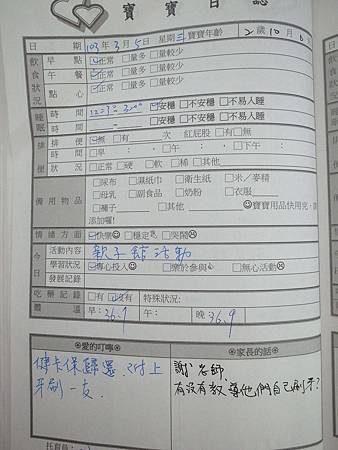 寶寶日誌
日 期 103年3月5日 星期三 寶寶年齡 2歲10月6
飲食狀況 早 點 ☑正常 □量多 □量較少
午 餐 ☑正常 □量多 □量較少
點 心 ☑正常 □量多 □量較少
睡眠 時間 ☑安穩 □不安穩 □不易入睡
時間 — □安穩 □不安穩 □不易入睡
排便狀況 排便 ☑無 □有 次 紅屁股 □有 □無
時間 □早 : □午 : □下午 :
便 □正常 □硬 □軟 □稀 □其他
備用物品 □尿布 □濕紙巾 □衛生紙 □米/麥精
□母乳 □副食品 □奶粉 □衣服
□褲子 □其他 ☺寶寶用品快用完,請
添加喔!
情緒方面 ☑快樂☺ □穩定 □哭鬧☹
今日 活動內容 親子館活動
學習狀況 ☑專心投入☺ □樂於參與 □無心活動☹
發展記錄
吃藥記錄 □有 ☑沒有 特殊狀況:
體 溫 早:36.7 午: 晚36.9
愛的叮嚀
健卡保歸還.付上
牙刷一支.
家長的話
謝老師
有沒有教導他們自己刷牙?
托育員: